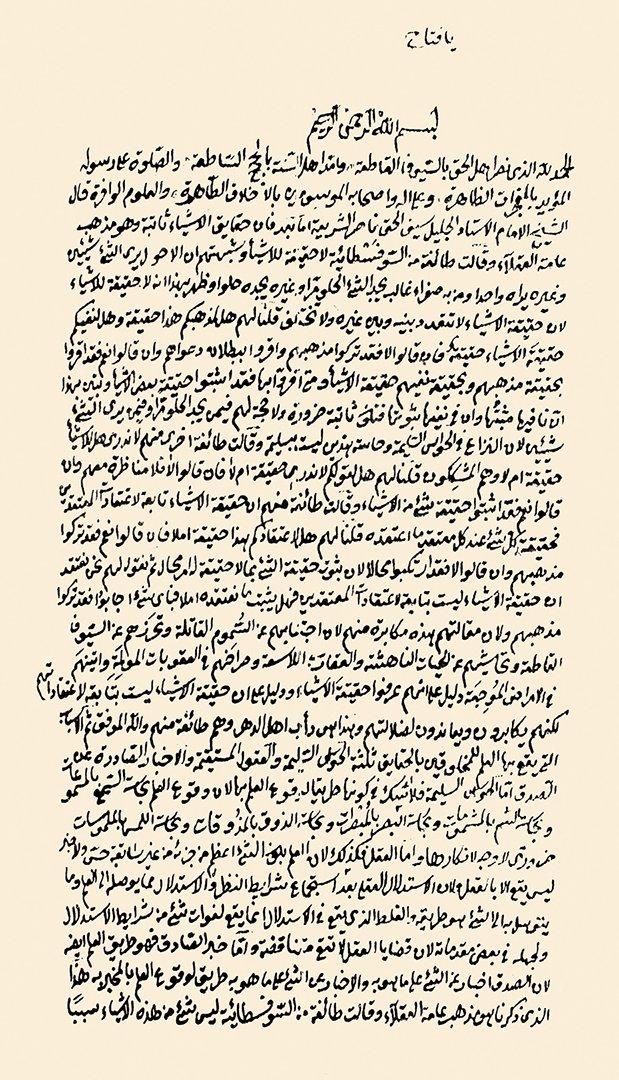 يا فتاح
بسم الله الرحمن الرحيم
الحمد لله الذي نصر اهل الحق بالسيوف القاطعة وامد اهل السنة بالحجج الساطعة والصلوة على رسوله
المؤيد بالمعجزات الظاهرة وعلى اله واصحابه الموسومين بالاخلاق الطاهرة والعلوم الوافرة قال
الشيخ الامام الاستاد الجليل سيف الحق ناصر الشريعة اما بعد فان حقايق الاشياء ثابتة وهو مذهب
عامة العقلاء وقالت طائفة من السوفسطائية لا حقيقة للاشياء وشبهتهم ان الاحول يرى الشئ شيئين
وغيره يراه واحدا ومن به صفراء غالب يجد الشئ الحلو مرا وغيره يجده حلوا وظهر بهذا انه لا حقيقة للاشياء
لان حقيقة الاشياء لا تتعدد بينه وبين غيره ولا تختلف قلنا لهم هل لمذهبكم هذا حقيقة وهل لنفيكم
حقيقة الاشياء حقيقة فان قالوا لا فقد تركوا مذهبهم واقروا ببطلان دعواهم وان قالوا نعم فقد اقروا
بحقيقة مذهبهم وبحقيقة نفيهم حقيقة الاشياء ومن اقر بها فقد اثبتوا حقيقة بعض الاشياء وتبين بهذا
ان نافيها مثبتها وان في نفيها ثبوتها فتكون ثابتة ضرورة ولا حجة لهم فيمن يجد الحلو مرا وفيمن يرى الشئ
شيئين لان النزاع في الحواس السليمة وحاسة هذين ليست بسليمة وقالت طائفة اخرى منهم لا ندري هل للاشياء
حقيقة ام لا وهم المتشككون قلنا لهم هل لقولكم لا ندري حقيقة ام لا فان قالوا لا فلا مناظرة معهم وان
قالوا نعم فقد اثبتوا حقيقة شئ من الاشياء وقالت طائفة منهم ان حقيقة الاشياء تابعة لاعتقادات المعتقدين
فحقيقة كل شئ عند كل معتقد ما اعتقده قلنا لهم هل لاعتقادكم بهذا حقيقة ام لا فان قالوا نعم فقد تركوا
مذهبهم وان قالوا لا فقد ارتكبوا محالا لان ثبوت حقيقة الشئ بما لا حقيقة له محال ثم نقول لهم نحن نعتقد
ان حقيقة الاشياء ليست بتابعة لاعتقادات المعتقدين فهل يثبت ما نعتقده ام لا فباى شئ اجابوا فقد تركوا
مذهبهم ولان مقالتهم هذه مكابرة منهم لان اجتنابهم عن السموم القاتلة وتحرزهم عن السيوف
القاطعة وتحاشيهم عن الحيات الناهشة والعقارب اللاسعة وصراخهم في العقوبات المولمة وانينهم
في الامراض الموجعة دليل على انهم عرفوا حقيقة الاشياء ودليل على ان حقيقة الاشياء ليست بتابعة لاعتقاداتهم
لكنهم يكابرون ويعاندون لضلالتهم وهذا من دأب اهل الدهر وهم طائفة منهم والله الموفق ثم الاسباب
التي يقع بها العلم للمخلوقين بالحقايق ثلثة الحواس السليمة والعقول المستقيمة والاخبار الصادرة عن
الصدق اما الحواس السليمة فلا شك في كونها طريقا لوقوع العلم بها لان وقوع العلم بحاسة السمع بالمسموعات
وبحاسة الشم بالمشمومات وبحاسة البصر بالمبصرات وبحاسة الذوق بالمذوقات وبحاسة اللمس بالملموسات
ضروري لا وجه لانكارها واما العقل فكذلك لان العلم بكون الشئ اعظم من جزئه
ليس يقع الا بالعقل ولان الاستدلال العقلي بعد استجماع شرايط النظر والاستدلال مما يوصله الى العلم وما
يتوصل به الى الشئ هو طريقه والغلط الذي يقع في الاستدلال انما يقع لفوات شئ من شرايط الاستدلال
ولجهله في بعض مقدماته لان قضايا العقل لا تقع متناقضة واما خبر الصادق فهو طريق العلم ايضا
لان الصدق اخبار عن الشئ على ما هو به والاخبار عن الشئ على ما هو به طريق لوقوع العلم بالمخبر به هذا
الذي ذكرنا هو مذهب عامة العقلاء وقالت طائفة من السوفسطائية ليس شئ من هذه الاشياء سببا